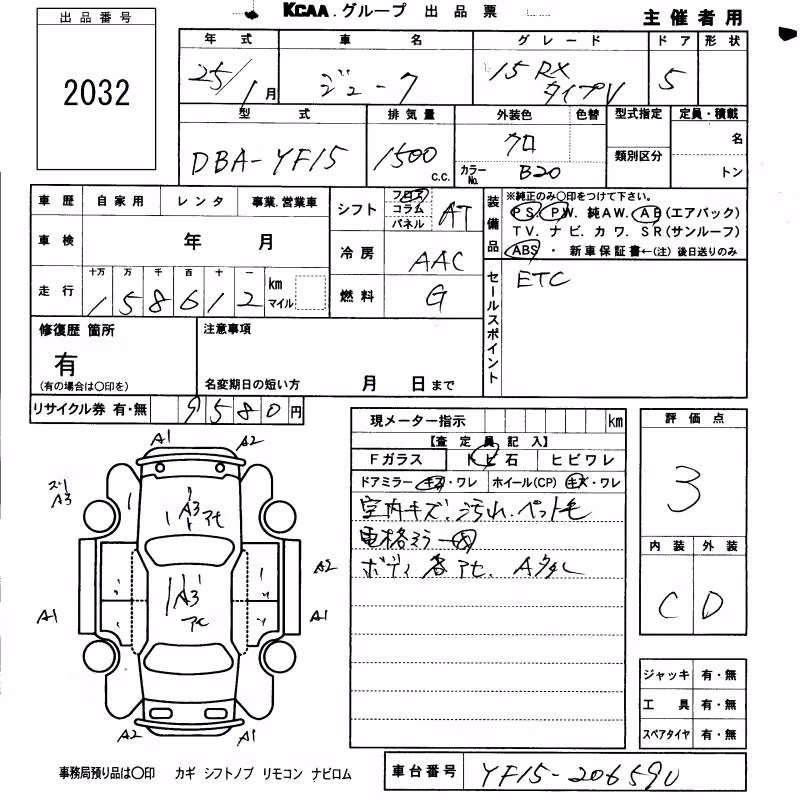 KCAA.グループ 出品票
主催者用
出品番号
2032
年式 車名 グレード ドア 形状
25/1月 ジューク 15RX タイプV 5
型式 排気量 外装色 色替 型式指定 定員・積載
DBA-YF15 1500 c.c. クロ カラーNo. B20 類別区分 名 トン
車歴 自家用 レンタ 事業.営業車
シフト フロア コラム パネル AT
装備品 ※純正のみ〇印をつけて下さい。
PS. PW. 純AW. AB(エアバック)
TV. ナビ. カワ. SR(サンルーフ)
ABS・新車保証書←(注)後日送りのみ
車検 年 月
冷房 AAC
走行 十万 万 千 百 十 一
158612 km マイル
燃料 G
セールスポイント ETC
修復歴 箇所
有
(有の場合は〇印を)
注意事項
名変期日の短い方 月 日まで
リサイクル券 有・無 9580円
現メーター指示 km
【査定員記入】
Fガラス トビ石 ヒビワレ
ドアミラー キズ・ワレ ホイール(CP) キズ・ワレ
室内キズ、汚れ、ペット毛
電格ミラー
ボディ各アセ、Aタタシ
評価点
3
内装 外装
C D
ジャッキ 有・無
工具 有・無
スペアタイヤ 有・無
A1 A2
A3
A3 アセ
A3 アセ
A2
A1 A1
A2 A1
事務局預り品は〇印 カギ シフトノブ リモコン ナビロム
車台番号 YF15-206590